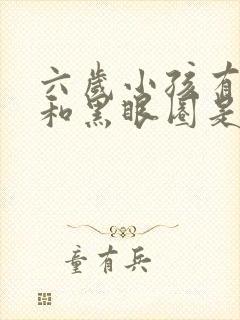 六岁小孩有
和黑眼圈是
童有兵